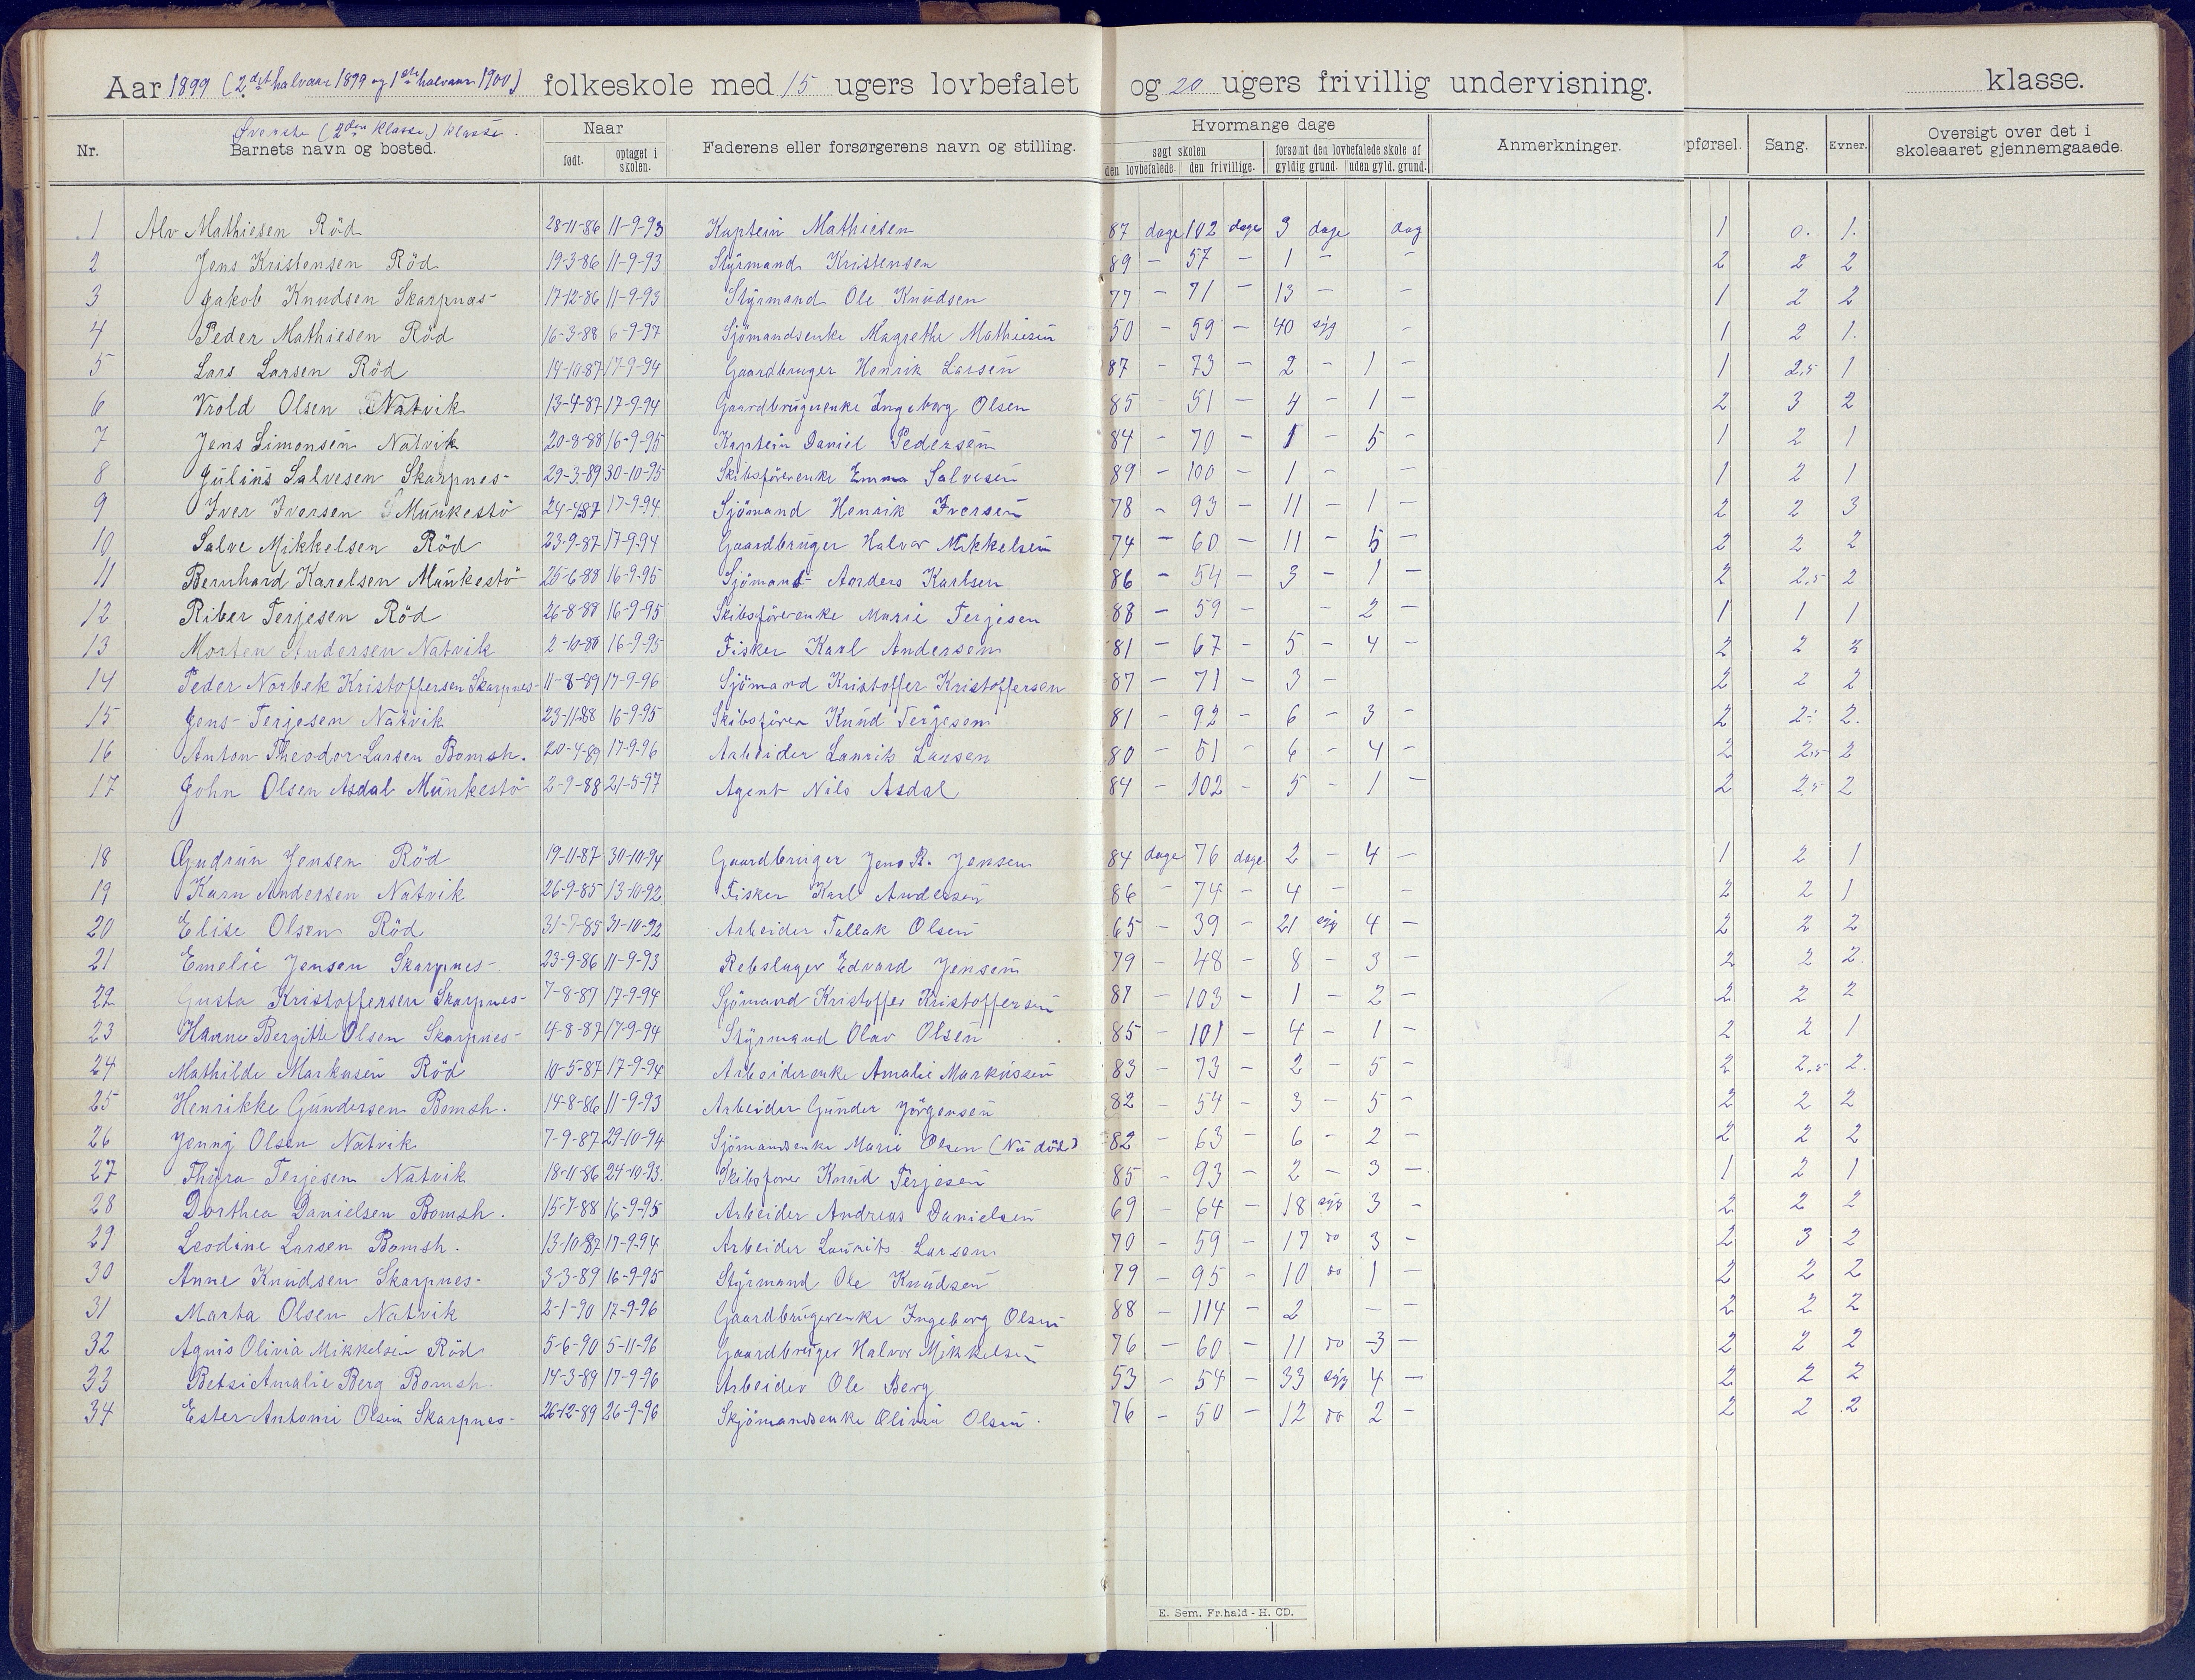 Aar 1899 (2det halvaar 1899 og 1ste halvaar 1900) folkeskole med 15 ugers lovbefalet og 20 ugers frivillig undervisning. klasse.
Øverste (2den Klasse) klasse.
Nr. Barnets navn og bosted. Naar født. optaget i skolen. Faderens eller forsørgerens navn og stilling. Hvormange dage søgt skolen den lovbefalede. den frivillige. forsømt den lovbefalede skole af gyldig grund. uden gyld. grund. Anmerkninger. pførsel. Sang. Evner. Oversigt over det i skoleaaret gjennemgaaede.
1 Alv Mathiesen Röd 28-11-86 11-9-93 Kaptein Mathiesen 87 dage 102 dage 3 dage dag 1 0. 1.
2 Jens Kristensen Röd 19-3-86 11-9-93 Styrmand Kristensen 89 - 57 - 1 - - 2 2 2
3 Jakob Knudsen Skarpnes- 17-12-86 11-9-93 Styrmand Ole Knudsen 77 - 71 - 13 - - 1 2 2
4 Peder Mathiesen Röd 16-3-88 6-9-97 Sjömandsenke Magrethe Mathiesen 50 - 59 - 40 syg - 1 2 1.
5 Lars Larsen Röd 14-10-87 17-9-94 Gaardbruger Henrik Larsen 87 - 73 - 2 - 1 - 1 2,5 1
6 Vrold Olsen Natvik 13-4-87 17-9-94 Gaardbrugerenke Ingeborg Olsen 85 - 51 - 4 - 1 - 2 3 2
7 Jens Simonsen Natvik 20-8-88 16-9-95 Kaptein Daniel Pedersen 84 - 70 - 1 - 5 - 1 2 1
8 Julius Salvesen Skarpnes- 29-3-89 30-10-95 Skibsförerenke Emma Salvesen 89 - 100 - 1 - - 1 2 1
9 Iver Iversen Munkestö 24-4-87 17-9-94 Sjömand Henrik Iversen 78 - 93 - 11 - 1 - 2 2 3
10 Salve Mikkelsen Röd 23-9-87 17-9-94 Gaardbruger Halvor Mikkelsen 74 - 60 - 11 - 5 - 2 2 2
11 Bernhard Karelsen Munkestö 25-6-88 16-9-95 Sjömand Anders Karlsen 86 - 54 - 3 - 1 - 2 2,5 2
12 Riber Terjesen Röd 26-8-88 16-9-95 Skibsförerenke Marie Terjesen 88 - 59 - - 2 - 1 1 1
13 Morten Andersen Natvik 2-10-88 16-9-95 Fisker Karl Andersen 81 - 67 - 5 - 4 - 2 2
14 Peder Norbek Kristoffersen Skarpnes- 11-8-89 17-9-96 Sjömand Kristoffer Kristoffersen 87 - 71 - 3 - 2 2 2
15 Jens Terjesen Natvik 23-11-88 16-9-95 Skibsförer Knud Terjesen 81 - 92 - 6 - 3 - 2 2 2.
16 Anton Theodor Larsen Bomsh. 20-4-89 17-9-96 Arbeider Laurits Larsen 80 - 51 - 6 - 4 - 2 2,5 2
17 John Olsen Asdal Munkestö 2-9-88 21-5-97 Agent Nils Asdal 84 - 102 - 5 - 1 - 2 2,5 2
18 Gudrun Jensen Röd 19-11-87 30-10-94 Gaardbruger Jens R. Jensen 84 dage 76 dage 2 - 4 - 1 2 1
19 Karn Andersen Natvik 26-9-85 13-10-92 Fisker Karl Andersen 86 - 74 - 4 - - 2 2 1
20 Elise Olsen Röd 31-7-85 31-10-92 Arbeider Tallak Olsen 65 - 39 - 21 syg 4 - 2 2 2
21 Emelie Jensen Skarpnes- 23-9-86 11-9-93 Rebslager Edvard Jensen 79 - 48 - 8 - 3 - 2 2 2.
22 Gusta Kristoffersen Skarpnes- 7-8-87 17-9-94 Sjömand Kristoffer Kristoffersen 87 - 103 - 1 - 2 - 2 2 2
23 Hanne Bergitte Olsen Skarpnes- 4-8-87 17-9-94 Styrmand Olav Olsen 85 - 101 - 4 - 1 - 2 2 1
24 Mathilde Markusen Röd 10-5-87 17-9-94 Arbeiderenke Amalie Markussen 83 - 73 - 2 - 5 - 2 2,5 2.
25 Henrikke Gundersen Bomsh. 14-8-86 11-9-93 Arbeider Gunder Jörgensen 82 - 54 - 3 - 5 - 2 2 2
26 Jenny Olsen Natvik 7-9-87 29-10-94 Sjömandsenke Marie Olsen (Nu död) 82 - 63 - 6 - 2 - 2 2 2
27 Thyra Terjesen Natvik 18-11-86 24-10-93. Skibsförer Knud Terjesen 85 - 93 - 2 - 3 - 1 2 1
28 Dorthea Danielsen Bomsh. 15-7-88 16-9-95 Arbeider Andreas Danielsen 69 - 64 - 18 syg 3 - 2 2 2
29 Leodine Larsen Bomsh. 13-10-87 17-9-94 Arbeider Laurits Larsen 70 - 59 - 17 do 3 - 2 3 2
30 Anne Knudsen Skarpnes- 3-3-89 16-9-95 Styrmand Ole Knudsen 79 - 95 - 10 do 1 - 2 2 2
31 Marta Olsen Natvik 2-1-90 17-9-96 Gaardbrugerenke Ingeborg Olsen 88 - 114 - 2 - - 2 2 2
32 Agnis Olivia Mikkelsen Röd 5-6-90 5-11-96 Gaardbruger Halvor Mikkelsen 76 - 60 - 11 do 3 - 2 2 2
33 Betsi Amalie Berg Bomsh. 14-3-89 17-9-96 Arbeider Ole Berg 53 - 54 - 33 syg 4 - 2 2 2
34 Ester Antoni Olsen Skarpnes- 26-12-89 26-9-96 Skjömandsenke Olivia Olsen. 76 - 50 - 12 do 2 - 2 2 2
E. Sem. Fr.hald - H. CD.